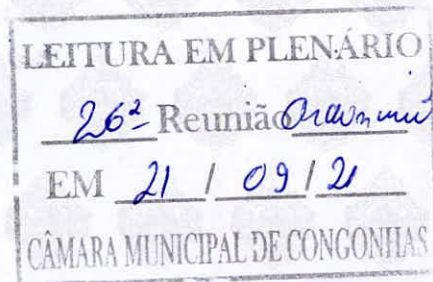 LEITURA EM PLENÁRIO
26ª Reunião Ordinária
EM 21 / 09 / 21
CÂMARA MUNICIPAL DE CONGONHAS